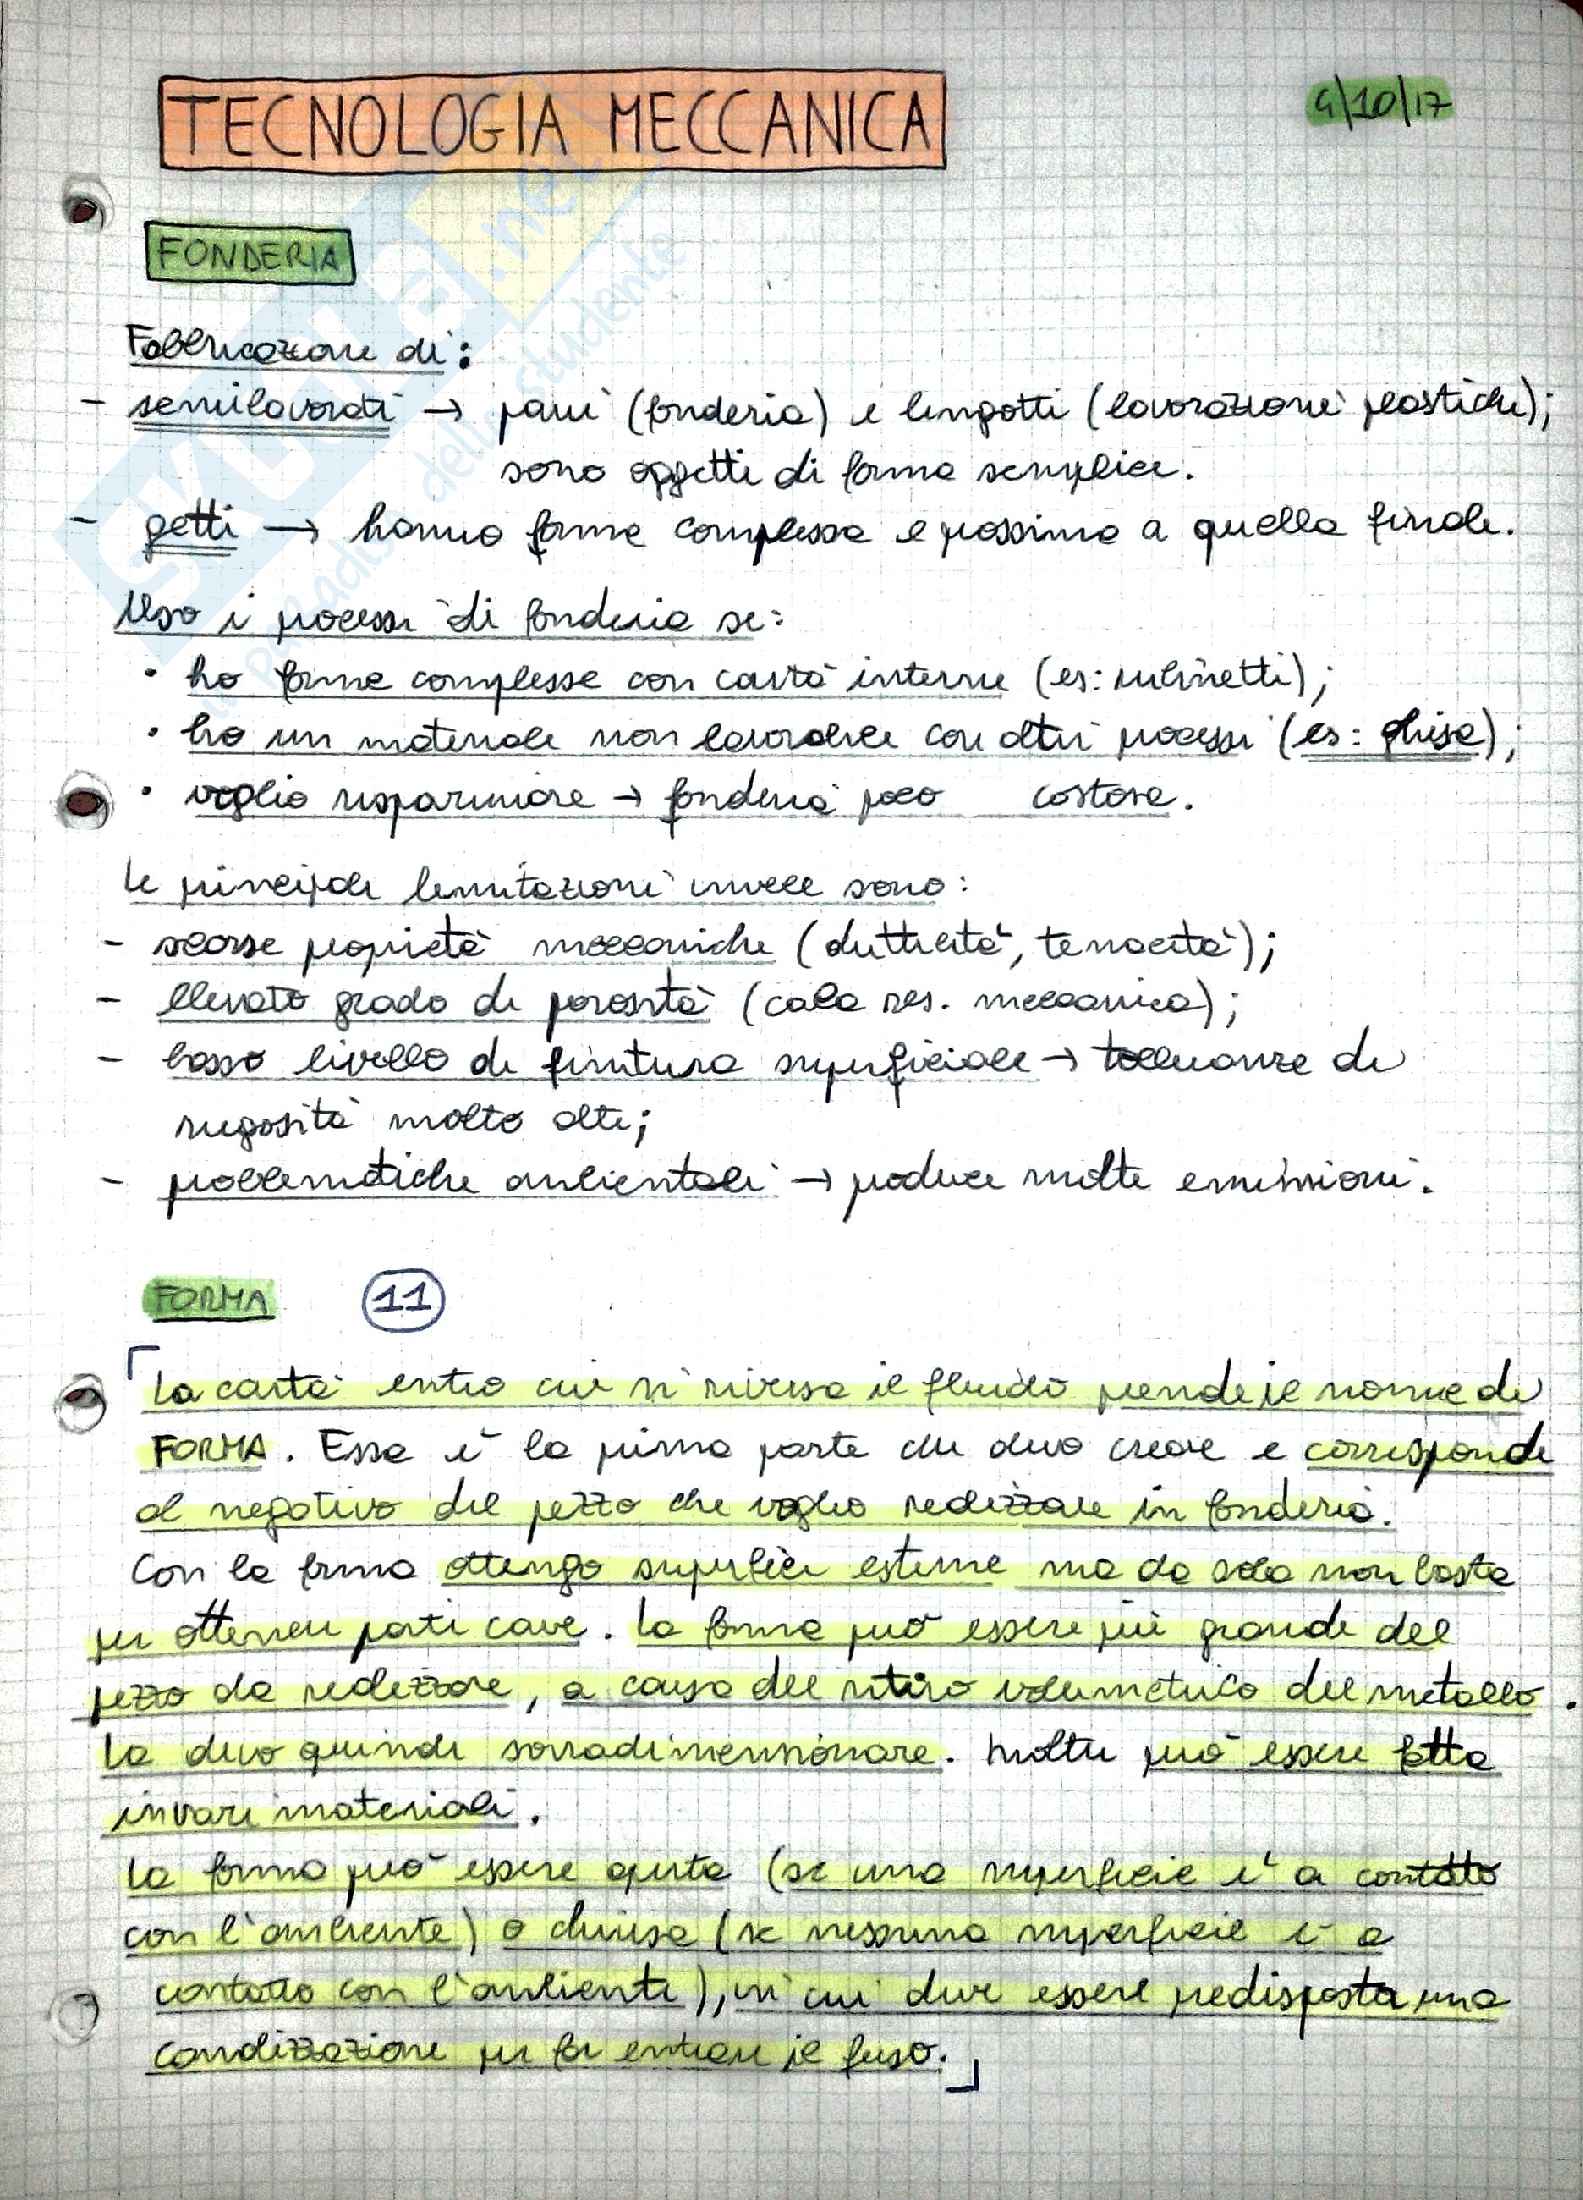 TECNOLOGIA MECCANICA
4/10/17
FONDERIA
Fabbricazione di:
- semilavorati → pani (fonderia) e lingotti (lavorazioni plastiche);
sono oggetti di forma semplice.
- getti → hanno forma complessa e prossima a quella finale.
Uso i processi di fonderia se:
• ho forme complesse con cavità interne (es: rubinetti);
• ho un materiale non lavorabile con altri processi (es: ghisa);
• voglio risparmiare → fonderia poco costosa.
Le principali limitazioni invece sono:
- scarse proprietà meccaniche (duttilità, tenacità);
- elevato grado di porosità (cala res. meccanica);
- basso livello di finitura superficiale → tolleranze di
rugosità molto alte;
- problematiche ambientali → produce molte emissioni.
FORMA 11
La cavità entro cui si riversa il fluido prende il nome di
FORMA. Essa è la prima parte che devo creare e corrisponde
al negativo del pezzo che voglio realizzare in fonderia.
Con la forma ottengo superfici esterne ma da sola non basta
per ottenere parti cave. La forma può essere più grande del
pezzo da realizzare, a causa del ritiro volumetrico del metallo.
La devo quindi sovradimensionare. Inoltre può essere fatta
in vari materiali.
La forma può essere aperta (se una superficie è a contatto
con l'ambiente) o chiusa (se nessuna superficie è a
contatto con l'ambiente), in cui deve essere predisposta una
canalizzazione per far entrare il fuso.
skuola.net